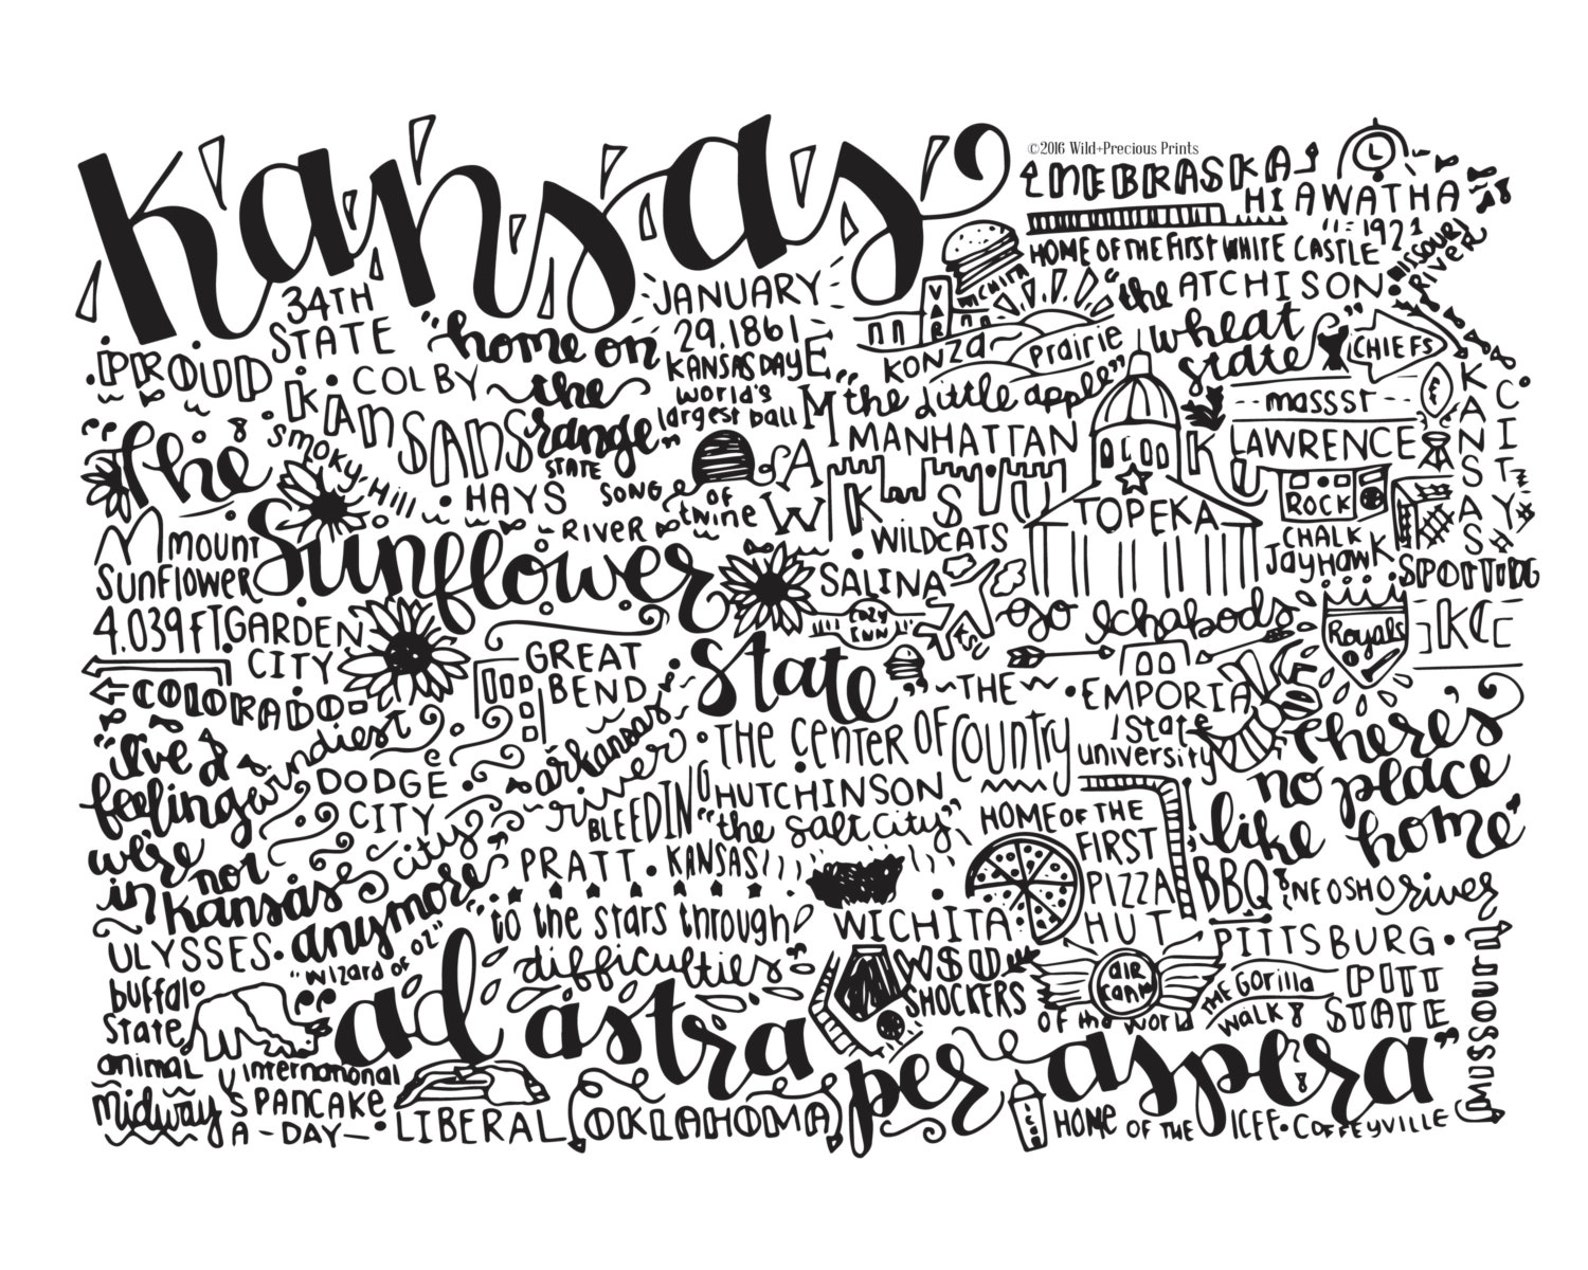 Kansas
©2016 Wild+Precious Prints
NEBRASKA
HIAWATHA
34TH
STATE
JANUARY
29, 1861
KANSAS DAY
WICHITA
1921
HOME OF THE FIRST WHITE CASTLE
MISSOURI
RIVER
"the
wheat
state"
ATCHISON
PROUD
KANSANS
COLBY
"home on
the
range"
STATE
SONG
world's
largest ball
OF
twine
EMAW
KONZA
prairie
"the little apple"
MANHATTAN
KSU
WILDCATS
CHIEFS
KANSAS
CITY
massst
LAWRENCE
KU
ROCK
CHALK
JayhawK
SPORTING
KC
Royals
TOPEKA
go Ichabods
The
Sunflower
State
smoky Hill
RIVER
HAYS
mount
SunFlower
4,039 FT
GARDEN
CITY
SALINA
COZY
INN
GREAT
BEND
COLORADO
windiest
city
DODGE
CITY
arkansas
river
~THE~
EMPORIA
State
university
THE CENTER OF COUNTRY
HUTCHINSON
"the salt city"
BLEEDING
KANSAS
PRATT
HOME OF THE
FIRST
PIZZA
HUT
there's
no place
like home"
"I've a
feeling
we're
not
in Kansas
anymore"
"WIZARD OF
OZ"
BBQ
NEOSHO river
ULYSSES
"to the stars through
difficulties"
WICHITA
WSU
SHOCKERS
AIR
OF the world
PITTSBURG
THE Gorilla
walk
PITT
STATE
MISSOURI
buffalo
State
animal
midway USA
"ad astra
per aspera"
International
PANCAKE
DAY
LIBERAL
OKLAHOMA
HOME OF THE
ICEE
COFFEYVILLE